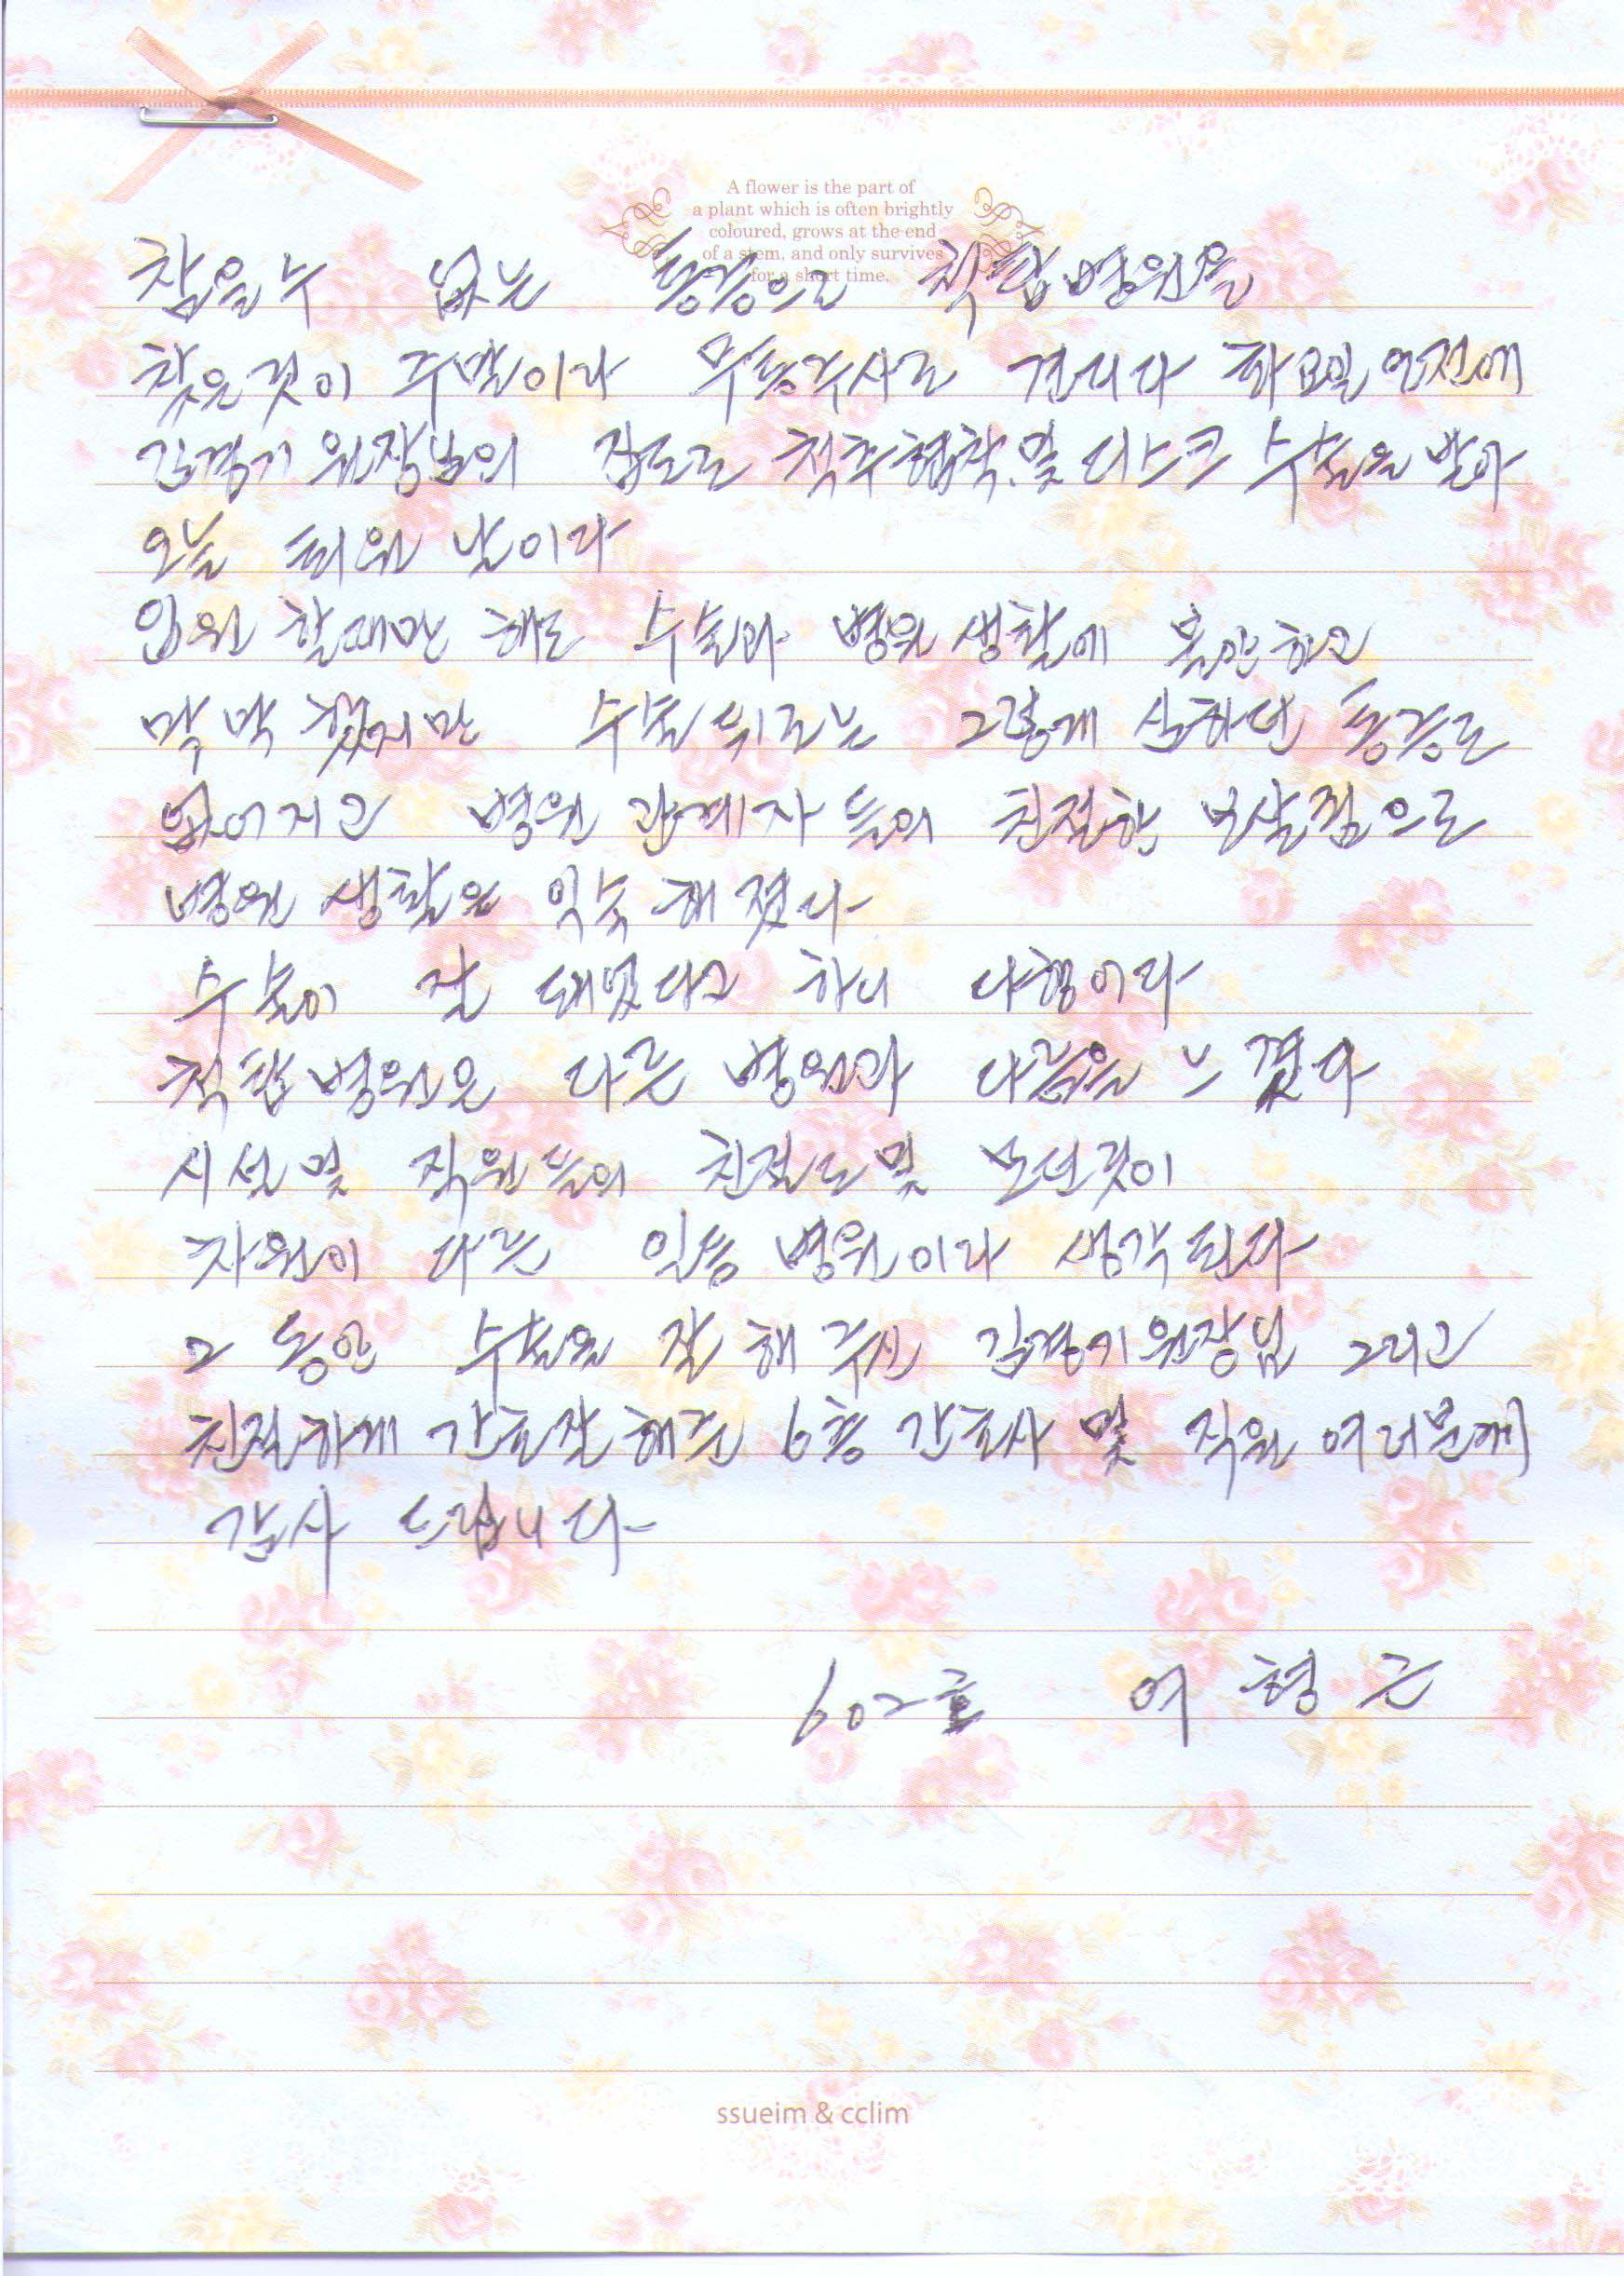 A flower is the part of
a plant which is often brightly
coloured, grows at the end
of a stem, and only survives
for a short time.
참을수 없는 통증으로 척탑병원을
찾은것이 주말이라 무통주사로 견디다 화요일 오전에
김경기 원장님의 집도로 척추협착.및 디스크 수술을 받아
오늘 퇴원 날이라
입원 할때만 해도 수술과 병원생활에 불안하고
막막 했지만 수술 뒤로는 그렇게 심하던 통증도
없어지고 병원 관계자 들의 친절한 보살핌으로
병원 생활은 익숙 해 졌다
수술이 잘 돼었다고 하니 다행이라
척탑병원은 다른 병원과 다름을 느꼈다
시설 및 직원 들의 친절도 및 모던것이
차원이 다른 일등 병원이라 생각된다
그 동안 수술을 잘 해 주신 김경기원장님 그리고
친절하게 간호잘해준 6층 간호사 및 직원 여러분께
감사 드립니다
602호 여형근
ssueim & cclim